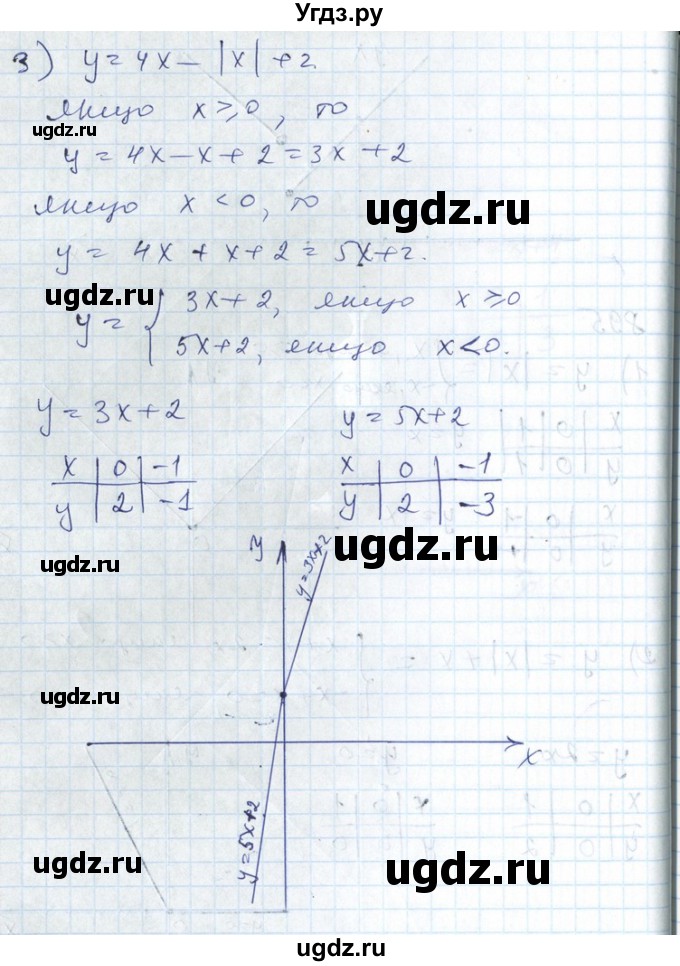 Угдз.ру
3) y = 4x - |x| + 2.
якщо x ≥ 0, то
ugdz.ru
y = 4x - x + 2 = 3x + 2
якщо x < 0, то
ugdz.ru
y = 4x + x + 2 = 5x + 2.
ugdz.ru
y = { 3x + 2, якщо x ≥ 0
5x + 2, якщо x < 0.
y = 3x + 2 y = 5x + 2
x | 0 | -1 x | 0 | -1
y | 2 | -1 y | 2 | -3
ugdz.ru
y y = 3x + 2
ugdz.ru
ugdz.ru
x
y = 5x + 2
ugdz.ru
ugdz.ru
ugdz.ru